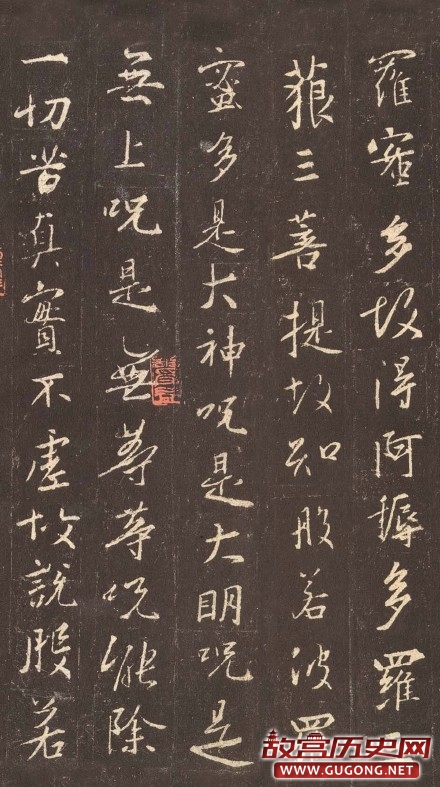 羅蜜多故得阿耨多羅三
藐三菩提故知般若波羅
蜜多是大神呪是大明呪是
無上呪是無等等呪能除
一切苦真實不虛故說般若
故宫历史网
WWW.GUGONG.NET